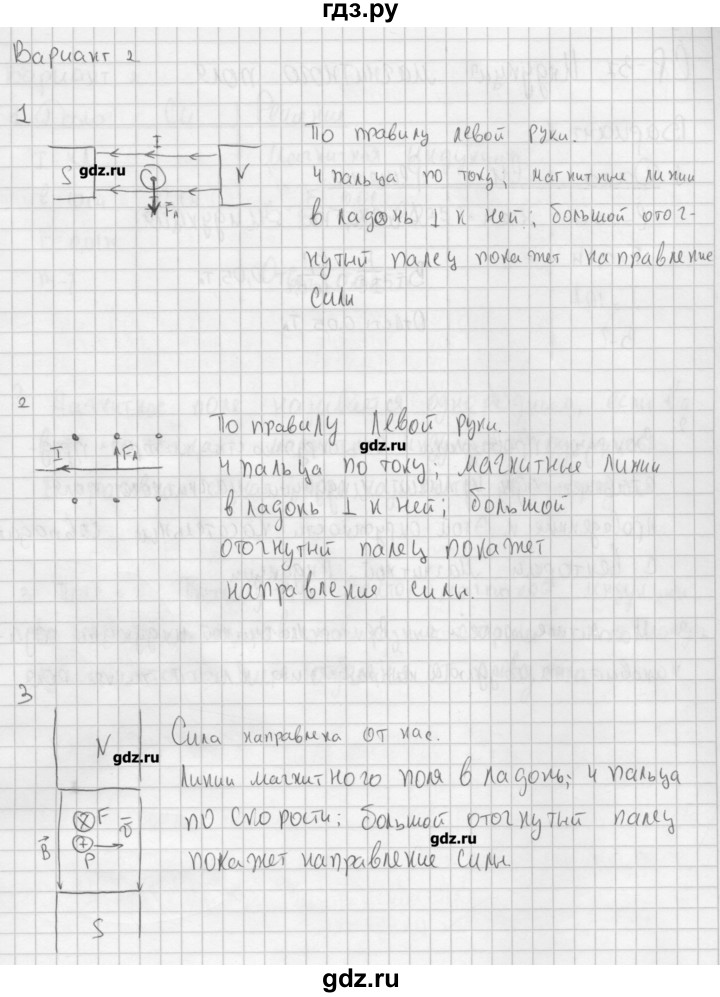 гдз.ру
Вариант 2
1
S
I
F_A
N
gdz.ru
По правилу левой руки.
4 пальца по току; магнитные линии
в ладонь ⊥ к ней; большой отог-
нутый палец покажет направление
силы
2
I
F_A
По правилу левой руки.
gdz.ru
4 пальца по току; магнитные линии
в ладонь ⊥ к ней; большой
отогнутый палец покажет
направление силы.
3
N
gdz.ru
B
F
P
S
Сила направлена от нас.
Линии магнитного поля в ладонь; 4 пальца
по скорости; большой отогнутый палец
покажет направление силы.
gdz.ru